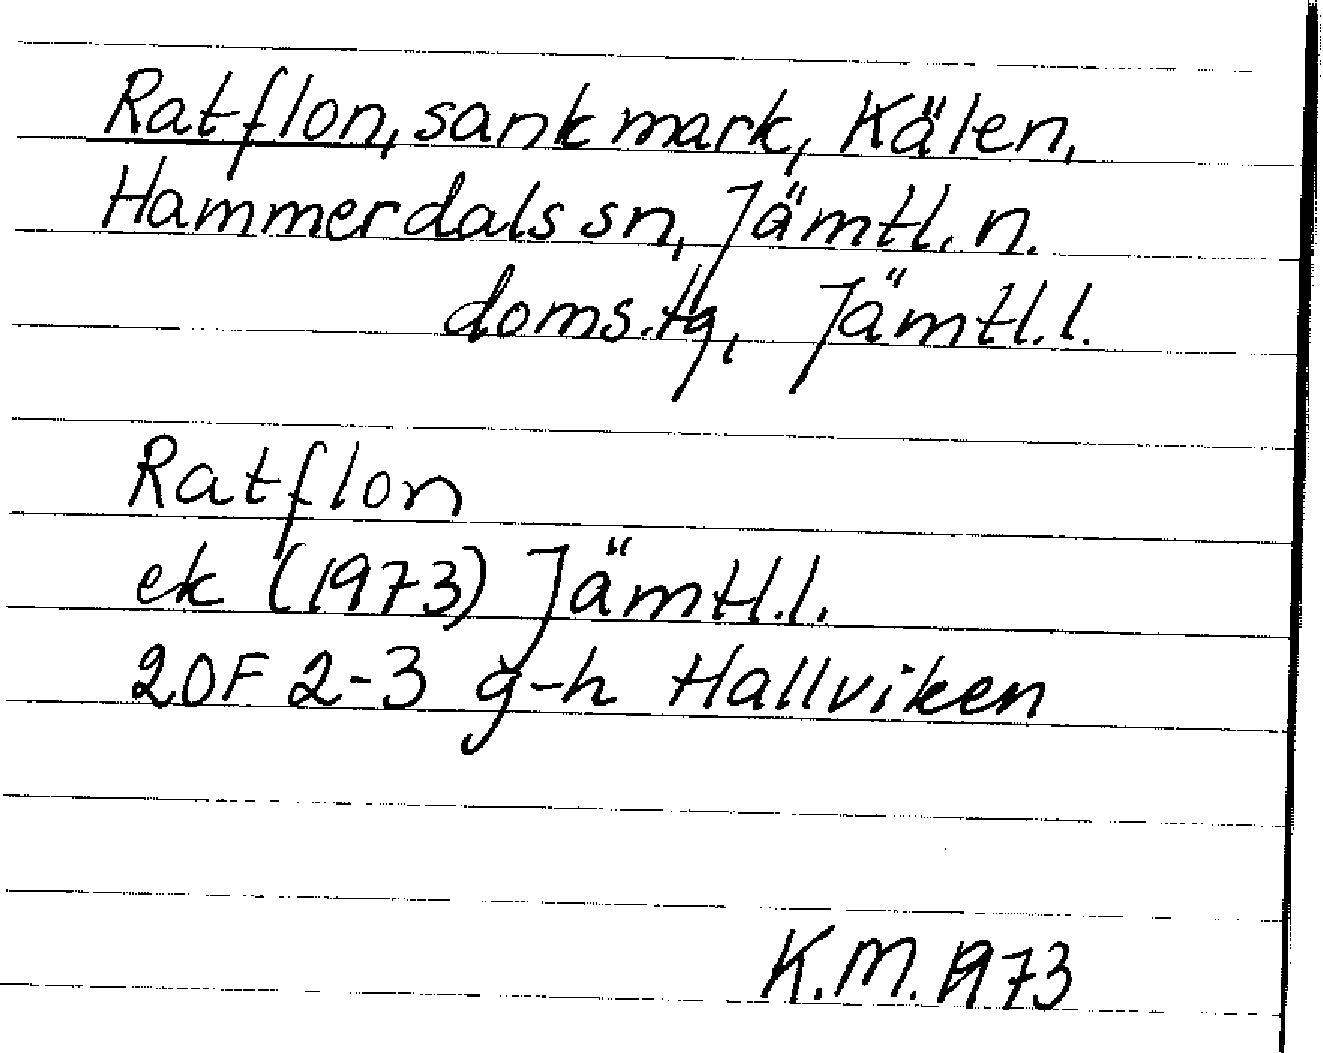 Ratflon, sank mark, Kälen,
Hammerdals sn, Jämtl. n.
doms. tg, Jämtl. l.
Ratflon
ek (1973) Jämtl. l.
20F 2-3 g-h Hallviken
K.M. 1973